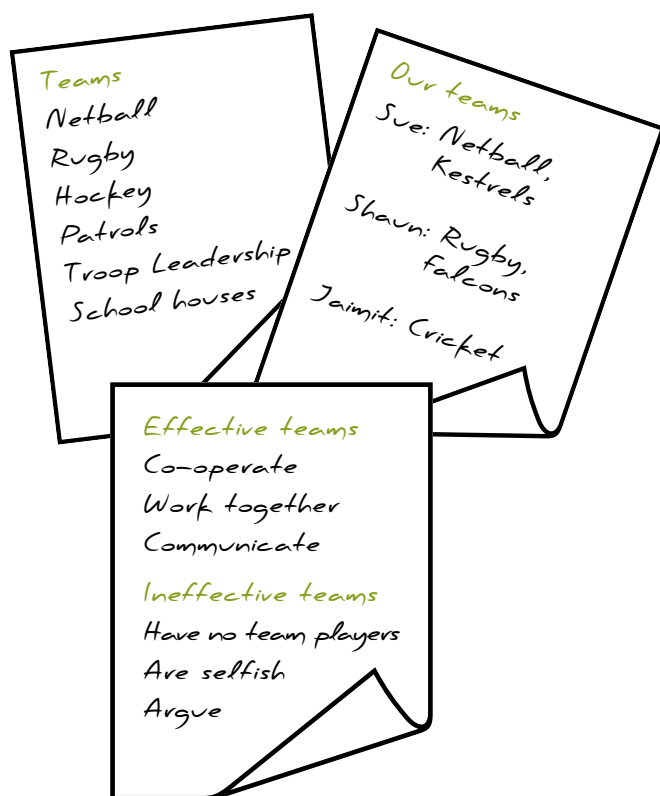 Teams
Netball
Rugby
Hockey
Patrols
Troop Leadership
School houses
Our teams
Sue: Netball,
Kestrels
Shaun: Rugby,
Falcons
Jaimit: Cricket
Effective teams
Co-operate
Work together
Communicate
Ineffective teams
Have no team players
Are selfish
Argue